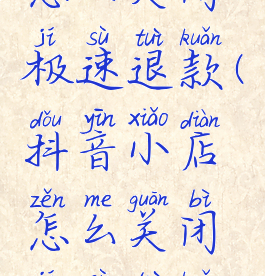 jí sù tuì kuǎn
极速退款(
dǒu yīn xiǎo diàn
抖音小店
zěn me guān bì
怎么关闭